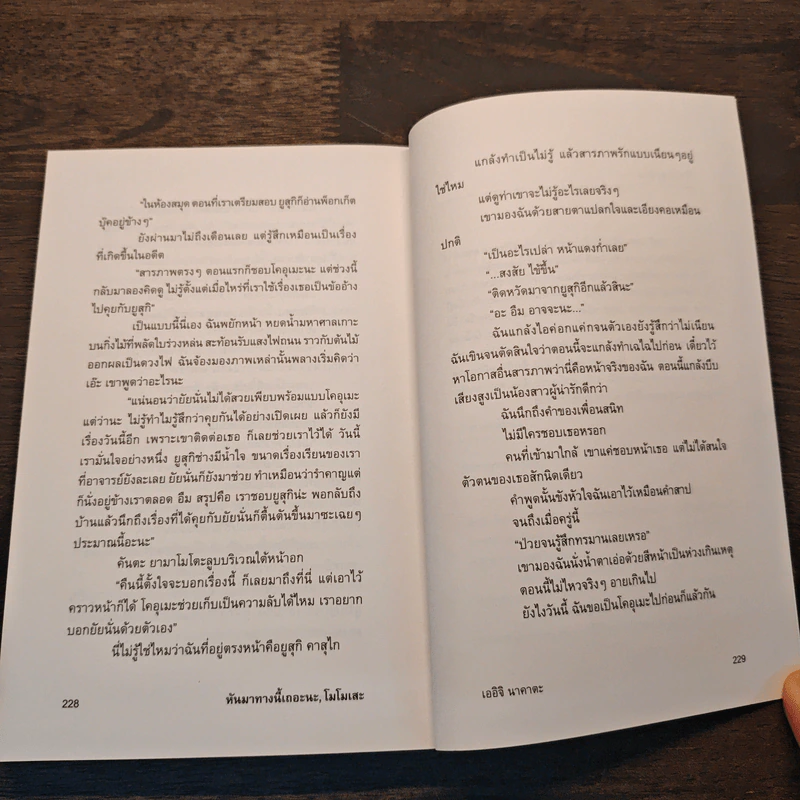 "ในห้องสมุด ตอนที่เราเตรียมสอบ ยูสุกิก็อ่านพ็อกเก็ต
บุ๊คอยู่ข้างๆ"
ยังผ่านมาไม่ถึงเดือนเลย แต่รู้สึกเหมือนเป็นเรื่อง
ที่เกิดขึ้นในอดีต
"สารภาพตรงๆ ตอนแรกก็ชอบโคอุเมะนะ แต่ช่วงนี้
กลับมาลองคิดดู ไม่รู้ตั้งแต่เมื่อไหร่ที่เราใช้เรื่องเธอเป็นข้ออ้าง
ไปคุยกับยูสุกิ"
เป็นแบบนี้นี่เอง ฉันพยักหน้า หยดน้ำมหาศาลเกาะ
บนกิ่งไม้ที่พลัดใบร่วงหล่น สะท้อนรับแสงไฟถนน ราวกับต้นไม้
ออกผลเป็นดวงไฟ ฉันจ้องมองภาพเหล่านั้นพลางเริ่มคิดว่า
เอ๊ะ เขาพูดว่าอะไรนะ
"แน่นอนว่ายัยนั่นไม่ได้สวยเพียบพร้อมแบบโคอุเมะ
แต่ว่านะ ไม่รู้ทำไมรู้สึกว่าคุยกันได้อย่างเปิดเผย แล้วก็ยังมี
เรื่องวันนี้อีก เพราะเขาติดต่อเธอ ก็เลยช่วยเราไว้ได้ วันนี้
เรามั่นใจอย่างหนึ่ง ยูสุกิช่างมีน้ำใจ ขนาดเรื่องเรียนของเรา
ที่อาจารย์ยังละเลย ยัยนั่นก็ยังมาช่วย ทำเหมือนว่ารำคาญแต่
ก็นั่งอยู่ข้างเราตลอด อืม สรุปคือ เราชอบยูสุกิน่ะ พอกลับถึง
บ้านแล้วนึกถึงเรื่องที่ได้คุยกับยัยนั่นก็ตื้นตันขึ้นมาซะเฉยๆ
ประมาณนี้อะนะ"
คันตะ ยามาโมโตะลูบบริเวณใต้หน้าอก
"คืนนี้ตั้งใจจะบอกเรื่องนี้ ก็เลยมาถึงที่นี่ แต่เอาไว้
คราวหน้าก็ได้ โคอุเมะช่วยเก็บเป็นความลับได้ไหม เราอยาก
บอกยัยนั่นด้วยตัวเอง"
นี่ไม่รู้ใช่ไหมว่าฉันที่อยู่ตรงหน้าคือยูสุกิ คาสุไก
228
หันมาทางนี้เถอะนะ, โมโมเสะ
แกล้งทำเป็นไม่รู้ แล้วสารภาพรักแบบเนียนๆอยู่
ใช่ไหม
แต่ดูท่าเขาจะไม่รู้อะไรเลยจริงๆ
เขามองฉันด้วยสายตาแปลกใจและเอียงคอเหมือน
ปกติ
"เป็นอะไรเปล่า หน้าแดงก่ำเลย"
"...สงสัย ไข้ขึ้น"
"ติดหวัดมาจากยูสุกิอีกแล้วสินะ"
"อะ อืม อาจจะนะ..."
ฉันแกล้งไอค่อกแค่กจนตัวเองยังรู้สึกว่าไม่เนียน
ฉันเขินจนตัดสินใจว่าตอนนี้จะแกล้งทำเฉไฉไปก่อน เดี๋ยวไว้
หาโอกาสอื่นสารภาพว่านี่คือหน้าจริงของฉัน ตอนนี้แกล้งบีบ
เสียงสูงเป็นน้องสาวผู้น่ารักดีกว่า
ฉันนึกถึงคำของเพื่อนสนิท
ไม่มีใครชอบเธอหรอก
คนที่เข้ามาใกล้ เขาแค่ชอบหน้าเธอ แต่ไม่ได้สนใจ
ตัวตนของเธอสักนิดเดียว
คำพูดนั้นขังหัวใจฉันเอาไว้เหมือนคำสาป
จนถึงเมื่อครู่นี้
"ป่วยจนรู้สึกทรมานเลยเหรอ"
เขามองฉันนั่งน้ำตาเอ่อด้วยสีหน้าเป็นห่วงเกินเหตุ
ตอนนี้ไม่ไหวจริงๆ อายเกินไป
ยังไงวันนี้ ฉันขอเป็นโคอุเมะไปก่อนก็แล้วกัน
229
เออิจิ นาคาตะ